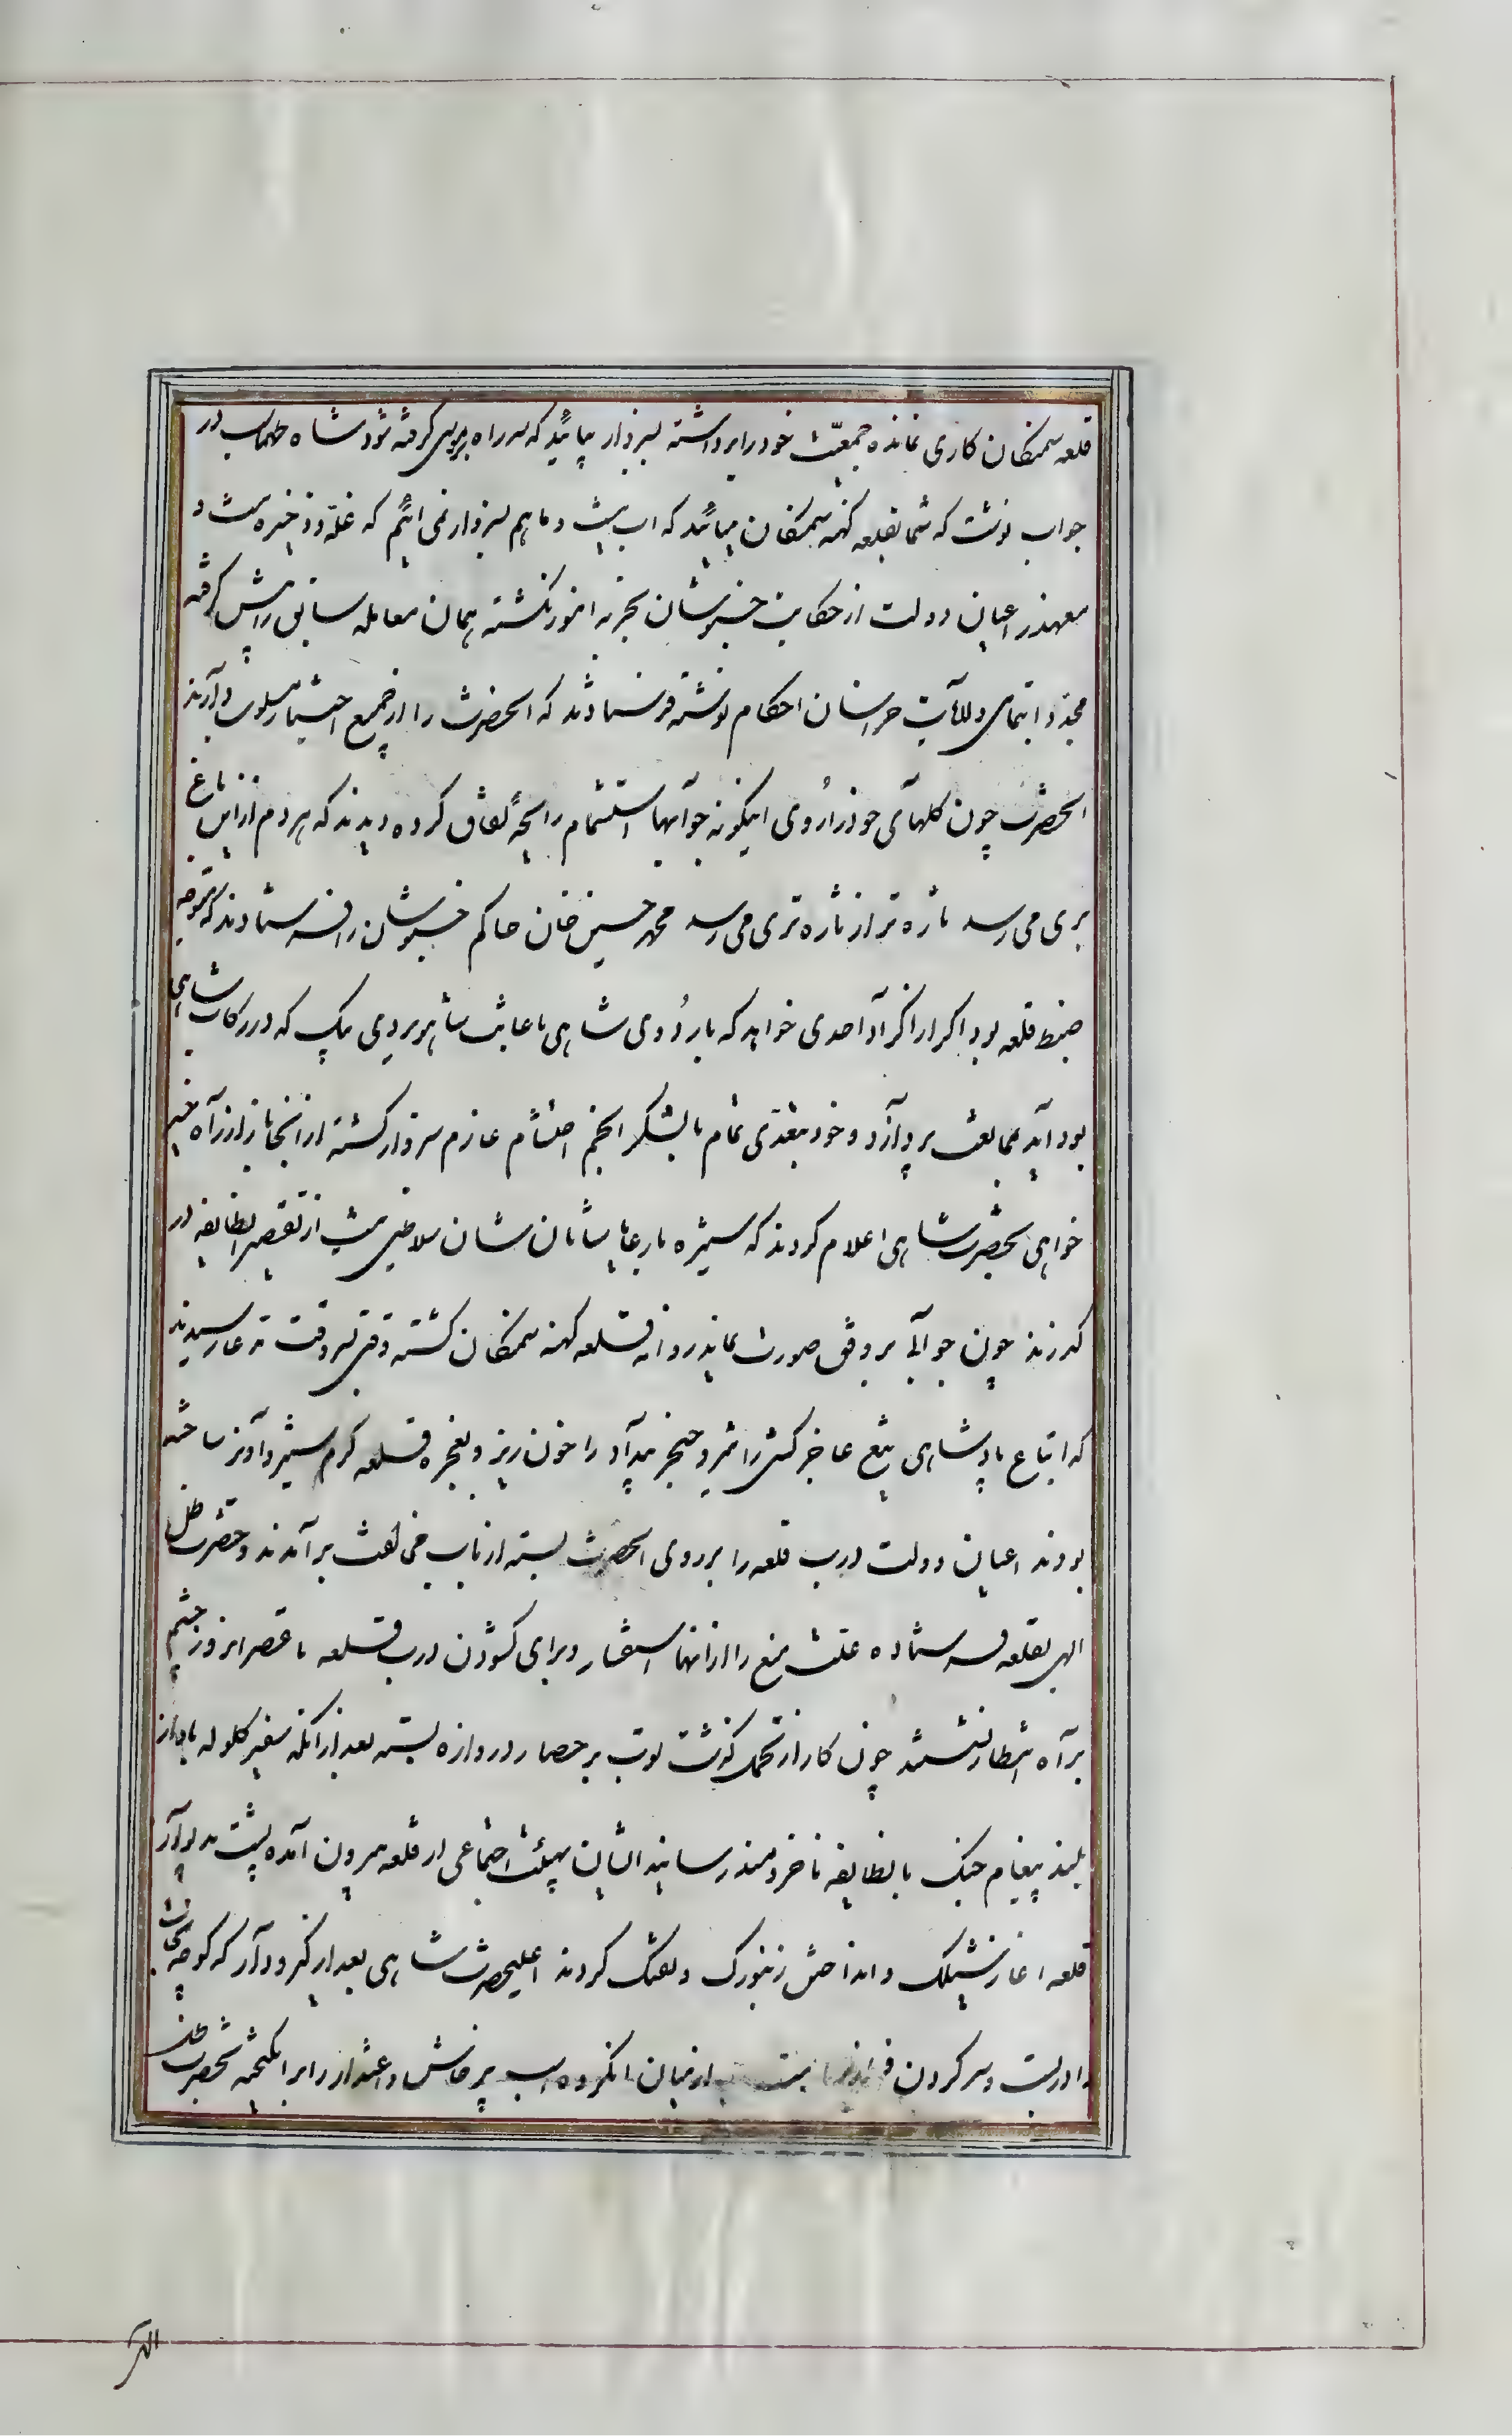 قلعه سمنکان کاری نمانده جمعیت خود را برداشته بسبزوار بیائید که سر راه بر روس گرفته شود شاه طهماسب در
جواب نوشت که شما بقلعه کهنه سمنکان بیائید که اسب نیست و ما هم بسبزوار نمی ائیم که غله و ذخیره نیست و
معهذا اعیان دولت از حکایت خبوشان تجربه اموز نکشته همان معامله سابق را پیش گرفته
مجددا بتمامی ولاات خراسان احکام نوشته فرستادند که انحضرت را از جمیع اختیار مسلوب دارند
انحضرت چون کلهای خودرو از روی اینکونه جوابها استشمام رایحهٔ نفاق کرده دیدند که هر دم از این باغ
بری می رسد تازه تر از تازه تری می رسد محمد حسین خان حاکم خبوشان را فرستادند که متوجه
ضبط قلعه بود اکر از اکراد احدی خواهد که باردوی شاهی باعانت شاهویردی بیک که در رکاب شاهی
بود اید بممانعت پردازد و خود بتقدی تمام با لشکر انجم احتشام عازم سبزوار کشته از انجا باز از راه خیر
خواهی بحضرت شاهی اعلام کردند که ستیزه با رعایا شایان شان سلاطین نیست از تقصیر انطایفه در
کذرند چون جوابی بر وفق صورت نماند روانه قلعه کهنه سمنکان کشته وقتی بسروقت مدعا رسیدند
که اتباع پادشاهی تیغ عاجز کشی را تیز و خنجر بیداد را خون ریز و بفجره قلعه کرم ستیز و آویز ساخته
بودند اعیان دولت درب قلعه را بر روی انحضرت بسته از باب مخالفت بر آمدند و حضرت ظل
الهی بقلعه فرستاده علت منع را از انها استفسار و برای کشودن درب قلعه تا عصر انروز چشم
براه انتظار نشستند چون کار از تحمل کذشت توپ بر حصار دروازه بسته بعد از انکه سفیر کلوله باواز
بلند پیغام جنک بانطایفه ناخردمند رسانید ایشان بهیئت اجتماعی از قلعه بیرون آمده پشت بدیوار
قلعه اغاز شیلک و انداختن زنبورک و تفنک کردند اعلیحضرت شاهی بعد از کیر و دار که کوچهٔ نجات
را در بست و سر کردن از میان انکروه اسب پرخاش و اعتذار را بر انکیخته بحضرت ظل
الهی